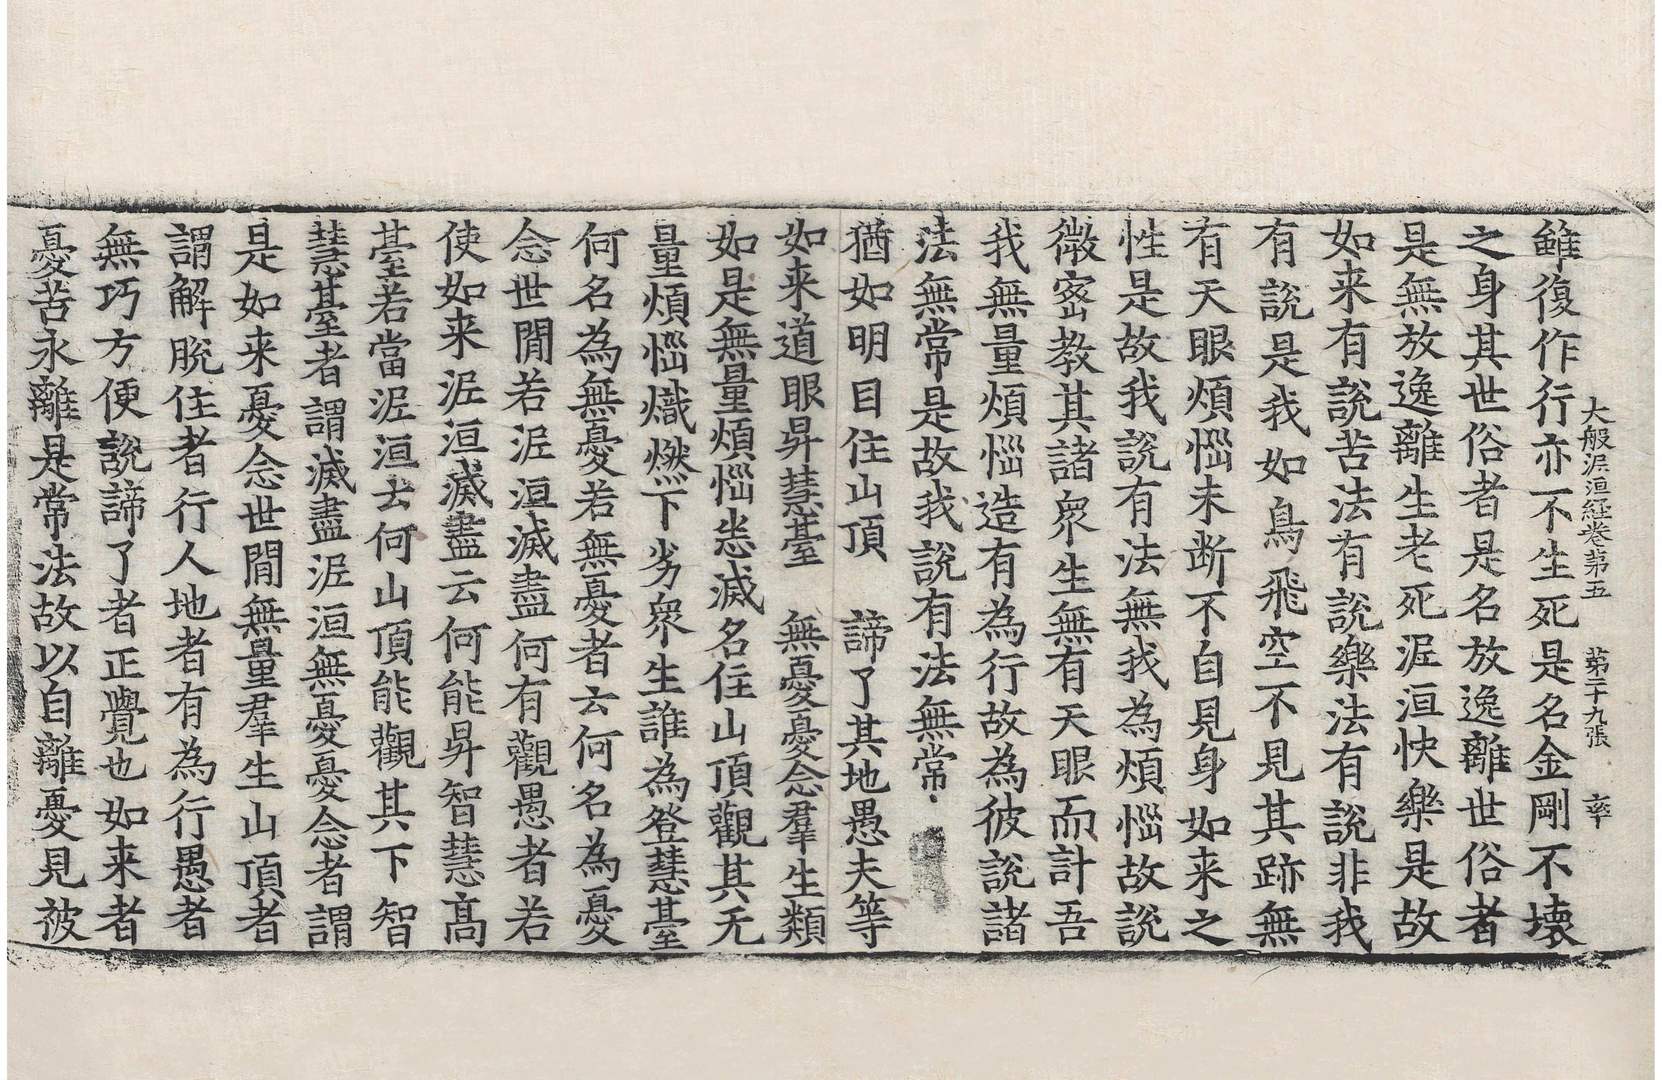 大般泥洹經卷第五　第二十九張　率
雖復作行亦不生死是名金剛不壊
之身其世俗者是名放逸離世俗者
是無放逸離生老死泥洹快樂是故
如来有說苦法有說樂法有說非我
有說是我如鳥飛空不見其跡無
有天眼煩惱未断不自見身如来之
性是故我說有法無我為煩惱故說
微密教其諸衆生無有天眼而計吾
我無量煩惱造有為行故為彼說諸
法無常是故我說有法無常
猶如明目住山頂　諦了其地愚夫等
如来道眼昇慧臺　無憂憂念羣生類
如是無量煩惱恚滅名住山頂觀其无
量煩惱熾燃下劣衆生誰為登慧臺
何名為無憂若無憂者云何名為憂
念世間若泥洹滅盡何有觀愚者若
使如来泥洹滅盡云何能昇智慧高
臺若當泥洹去何山頂能觀其下智
慧臺者謂滅盡泥洹無憂憂念者謂
是如来憂念世間無量羣生山頂者
謂解脫住者行人地者有為行愚者
無巧方便說諦了者正覺也如来者
憂苦永離是常法故以自離憂見被